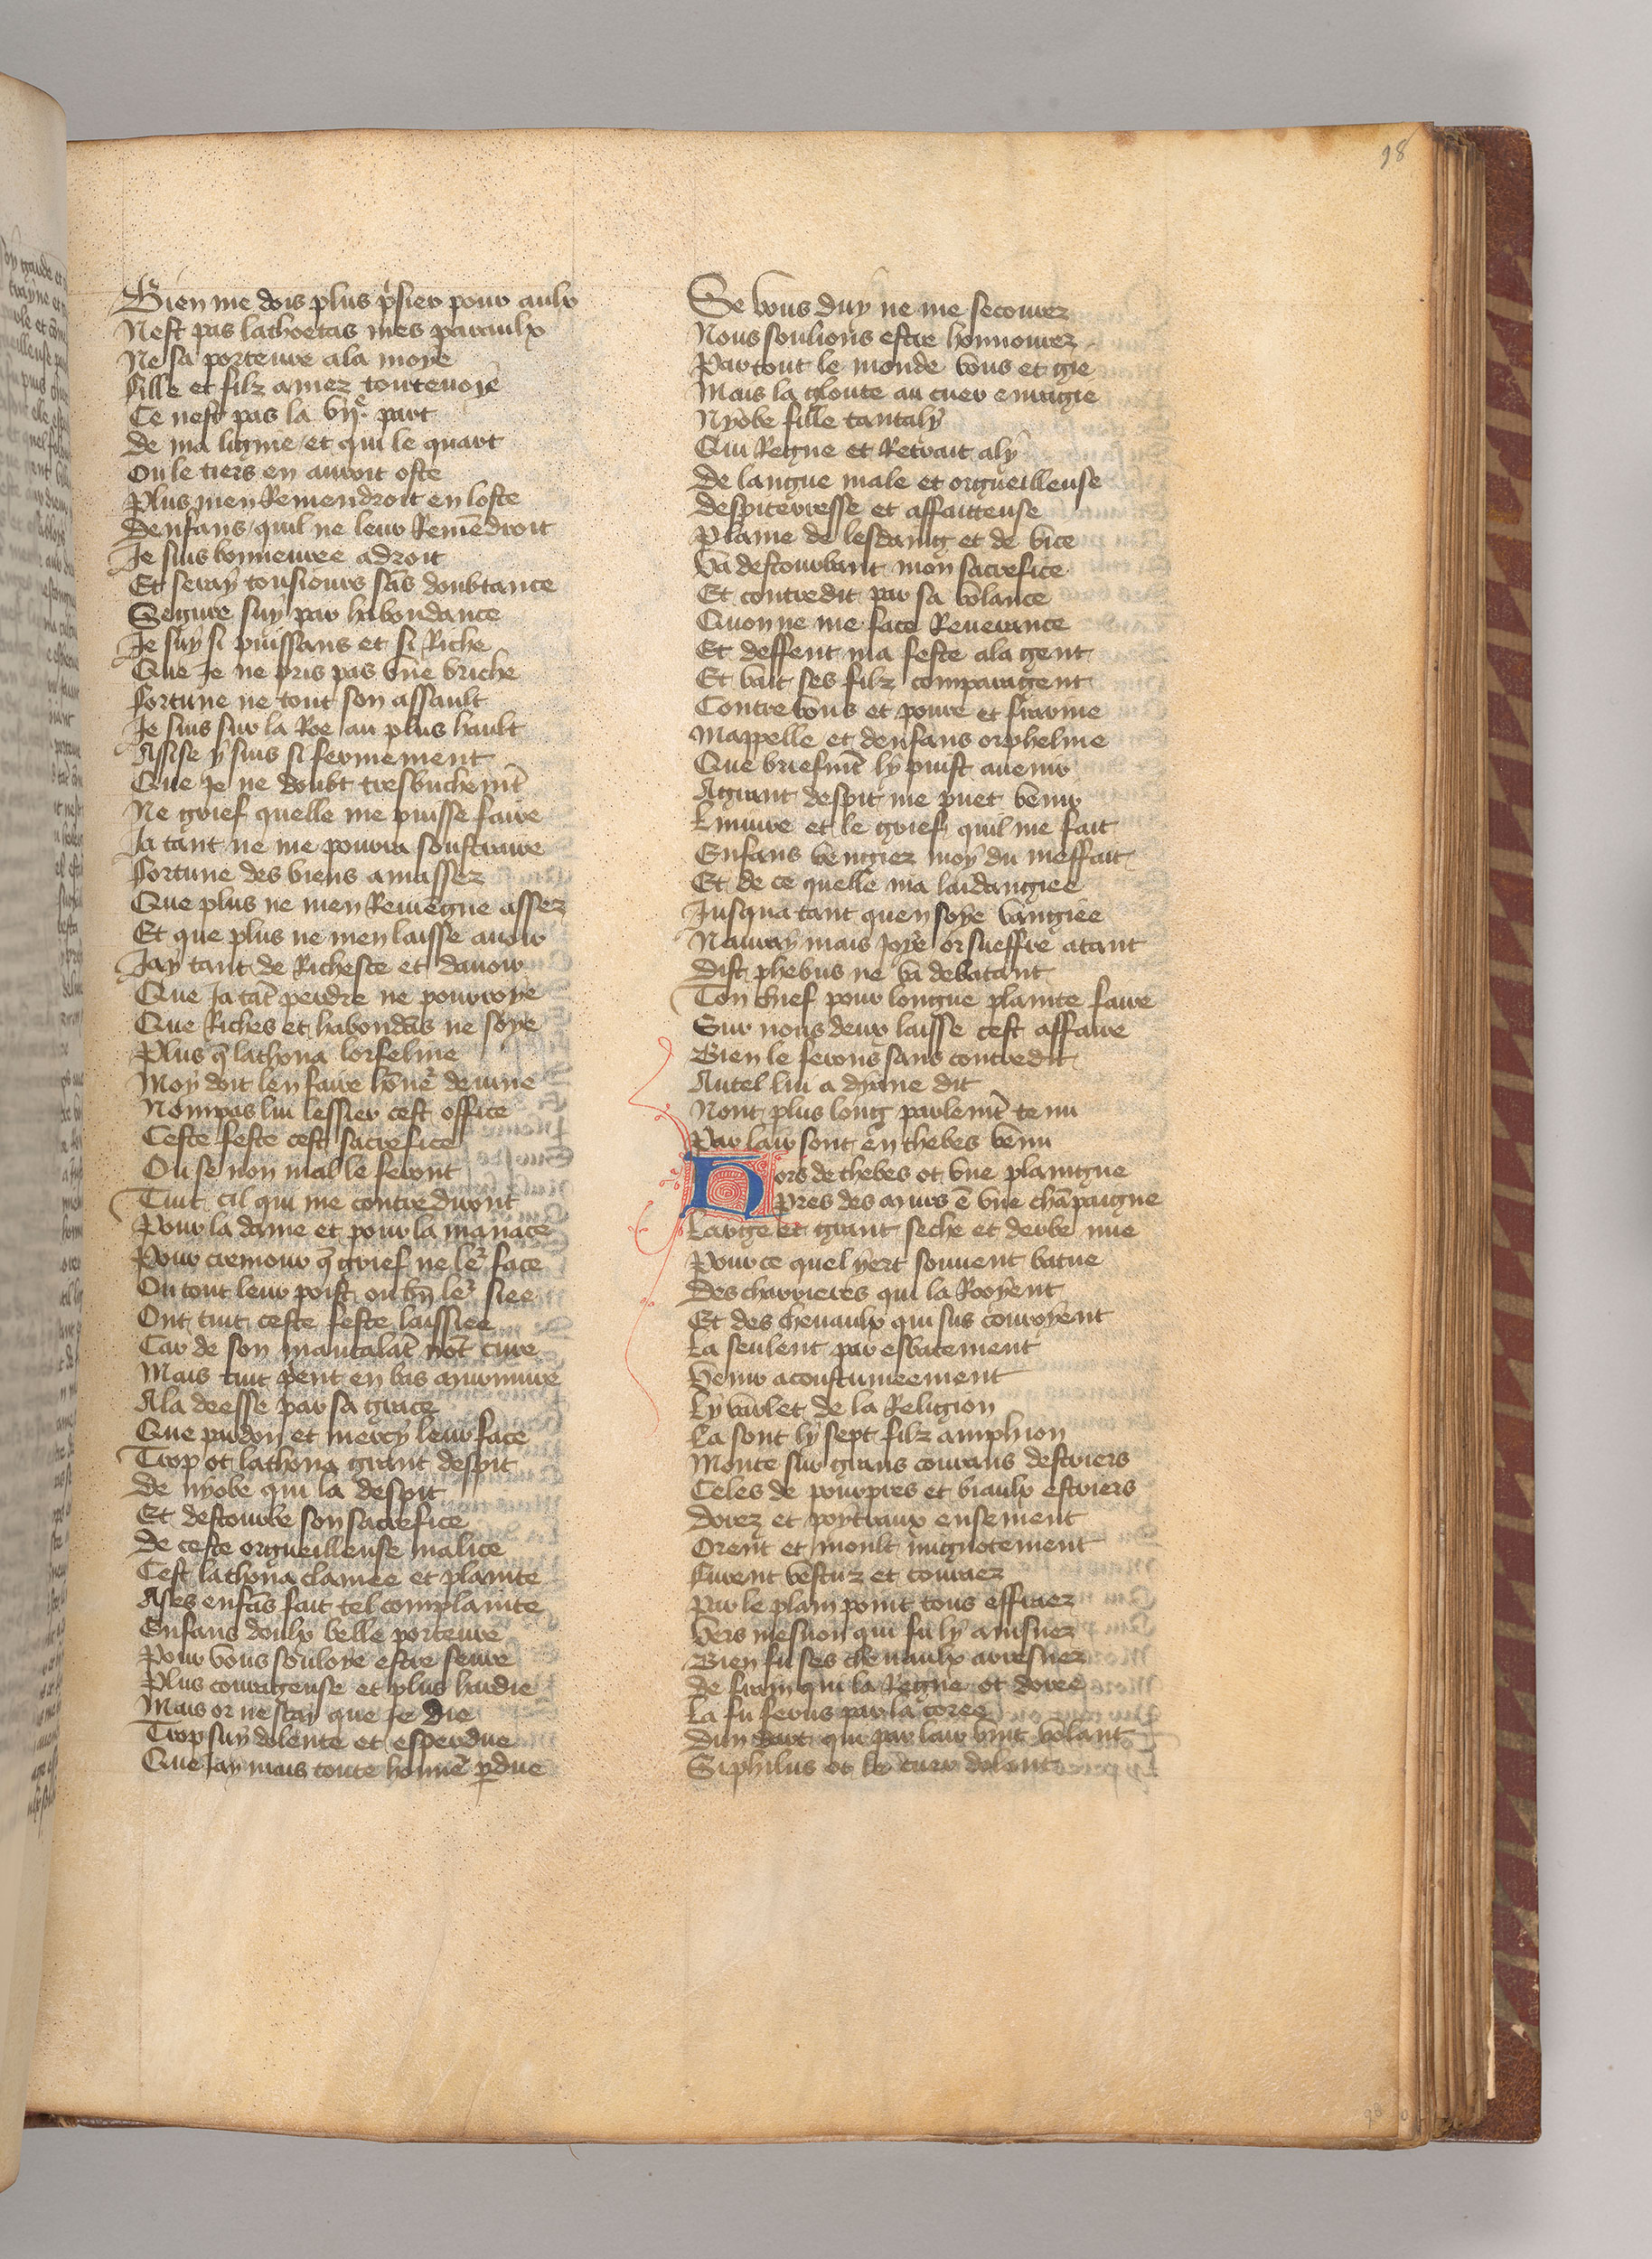 98
Bien me dois plus p̃sier pour aulx
Nest pas lathoetas mes paraulx
Ne sa porteure ala moye
Fille et filz amez toutevoye
Ce nest pas la vijᵉ. part
de ma lignie et qui le quart
Ou le tiers en auroit oste
Plus men Remendroit en loste
Denfans quil ne leur Remẽdroit
Je suis bonneuree adroit
Et seray tousiours sãs doubtance
Segure suy par habondance
Je suy si puissans et si Riche
Que Je ne pris pas vne briche
Fortune ne tout son assault
Je suis sur la Roe au plus hault
Assise y suis si fermement
Que Je ne doubt tresbuchemt̃
Ne grief quelle me puisse faire
Ja tant ne me pourra soustraire
Fortune des biens amassez
Que plus ne men Remẽgne assez
Et que plus ne men laisse auoir
Jay tant de Richesce et dauoir
Que Ja tãt perdre ne pourroye
Que Riches et habondãs ne soye
Plus q̃ lathona lorfeline
Moy doit len faire hõne᷑ deuine
Nompas lui lessier cest office
Ceste feste cest sacrefice
Ou se non mal le feront
Tuit cil qui me contrediront
Pour la dame et pour la manace
Pour cremour q̃ grief ne le᷑ face
Ou tout leur poist ou bñ le᷑ siee
Ont tuit ceste feste laissiee
Car de son mautalãt nõt cure
Mais tuit p̃ent en bas murmure
Ala deesse par sa grace
Que pardon et mercy leur face
Trop ot lathona grant despit
De nyobe qui la despit
Et destourbe son sacrefice
De ceste orgueilleuse malice
Cest lathona clamee et plainte
Ases enfãs fait tel complainte
Enfans doulx belle porteure
Pour vous souloye estre seure
Plus courageuse et plus hardie
Mais or ne scay que Je die
Trop suy dolente et esperdue
Que Jay mais toute honne᷑ ꝑdue
Se vous duy ne me secourez
Nous soulions estre honnourez
Partout le monde vous et gie
Mais la gloute au cuer enragie
Nyobe fille tantaly
Qui Regne et Retrait aly
De langue male et orgueilleuse
despiterresse et affaitteuse
Plaine de lesdaing et de vice
Va destourbant mon sacrefice
Et contredit par sa vol̃ance
Quon ne me face Reuerance
Et deffent ma feste ala gent
Et vait ses filz comparagent
Contre vous et poure et frarine
Mappelle et denfans orpheline
Que briefmt̃ ly puist auenir
Agrant despit me puet venir
Liniure et le grief quil me fait
Enfans vengiez moy du meffait
Et de ce quelle ma laidangiee
Jusqua tant quen soye vangiee
Nauray mais Joye or sueffre atant
Dist phebus ne va debatant
Ton chief pour longue plainte faire
Sur nous deux laisse cest affaire
Bien le ferons sans contredit
Autel lui a dyane dit
Nont plus long parlemt̃ tenu
Par lair sont en thebes venu
Hors de thebes ot vne plaingne
Pres des murs ẽ vne chãpaigne
Large et grant seche et derbe nue
Pour ce quel yert souuent batue
Des charrieres qui la Rooyent
Et des cheuaulx qui sus couroyent
La seulent par esbatement
Venir acoustumeement
Ly varlet de la Religion
La sont ly sept filz amphion
Monte sur grans courans destriers
Celes de pourpres et biaulx estriers
Dorez et poytraux ensement
Orent et moult mignotement
Furent vestuz et courez
Par le plain point tous effraez
Vers mesnon qui fu ly ainsnez
Bien fu ses cheuaulx arresnez
De frain qui la Regne ot doree
La fu ferus par la coree
Dun dart qui par lair vint volant
Siphilus ot le cuer dolent